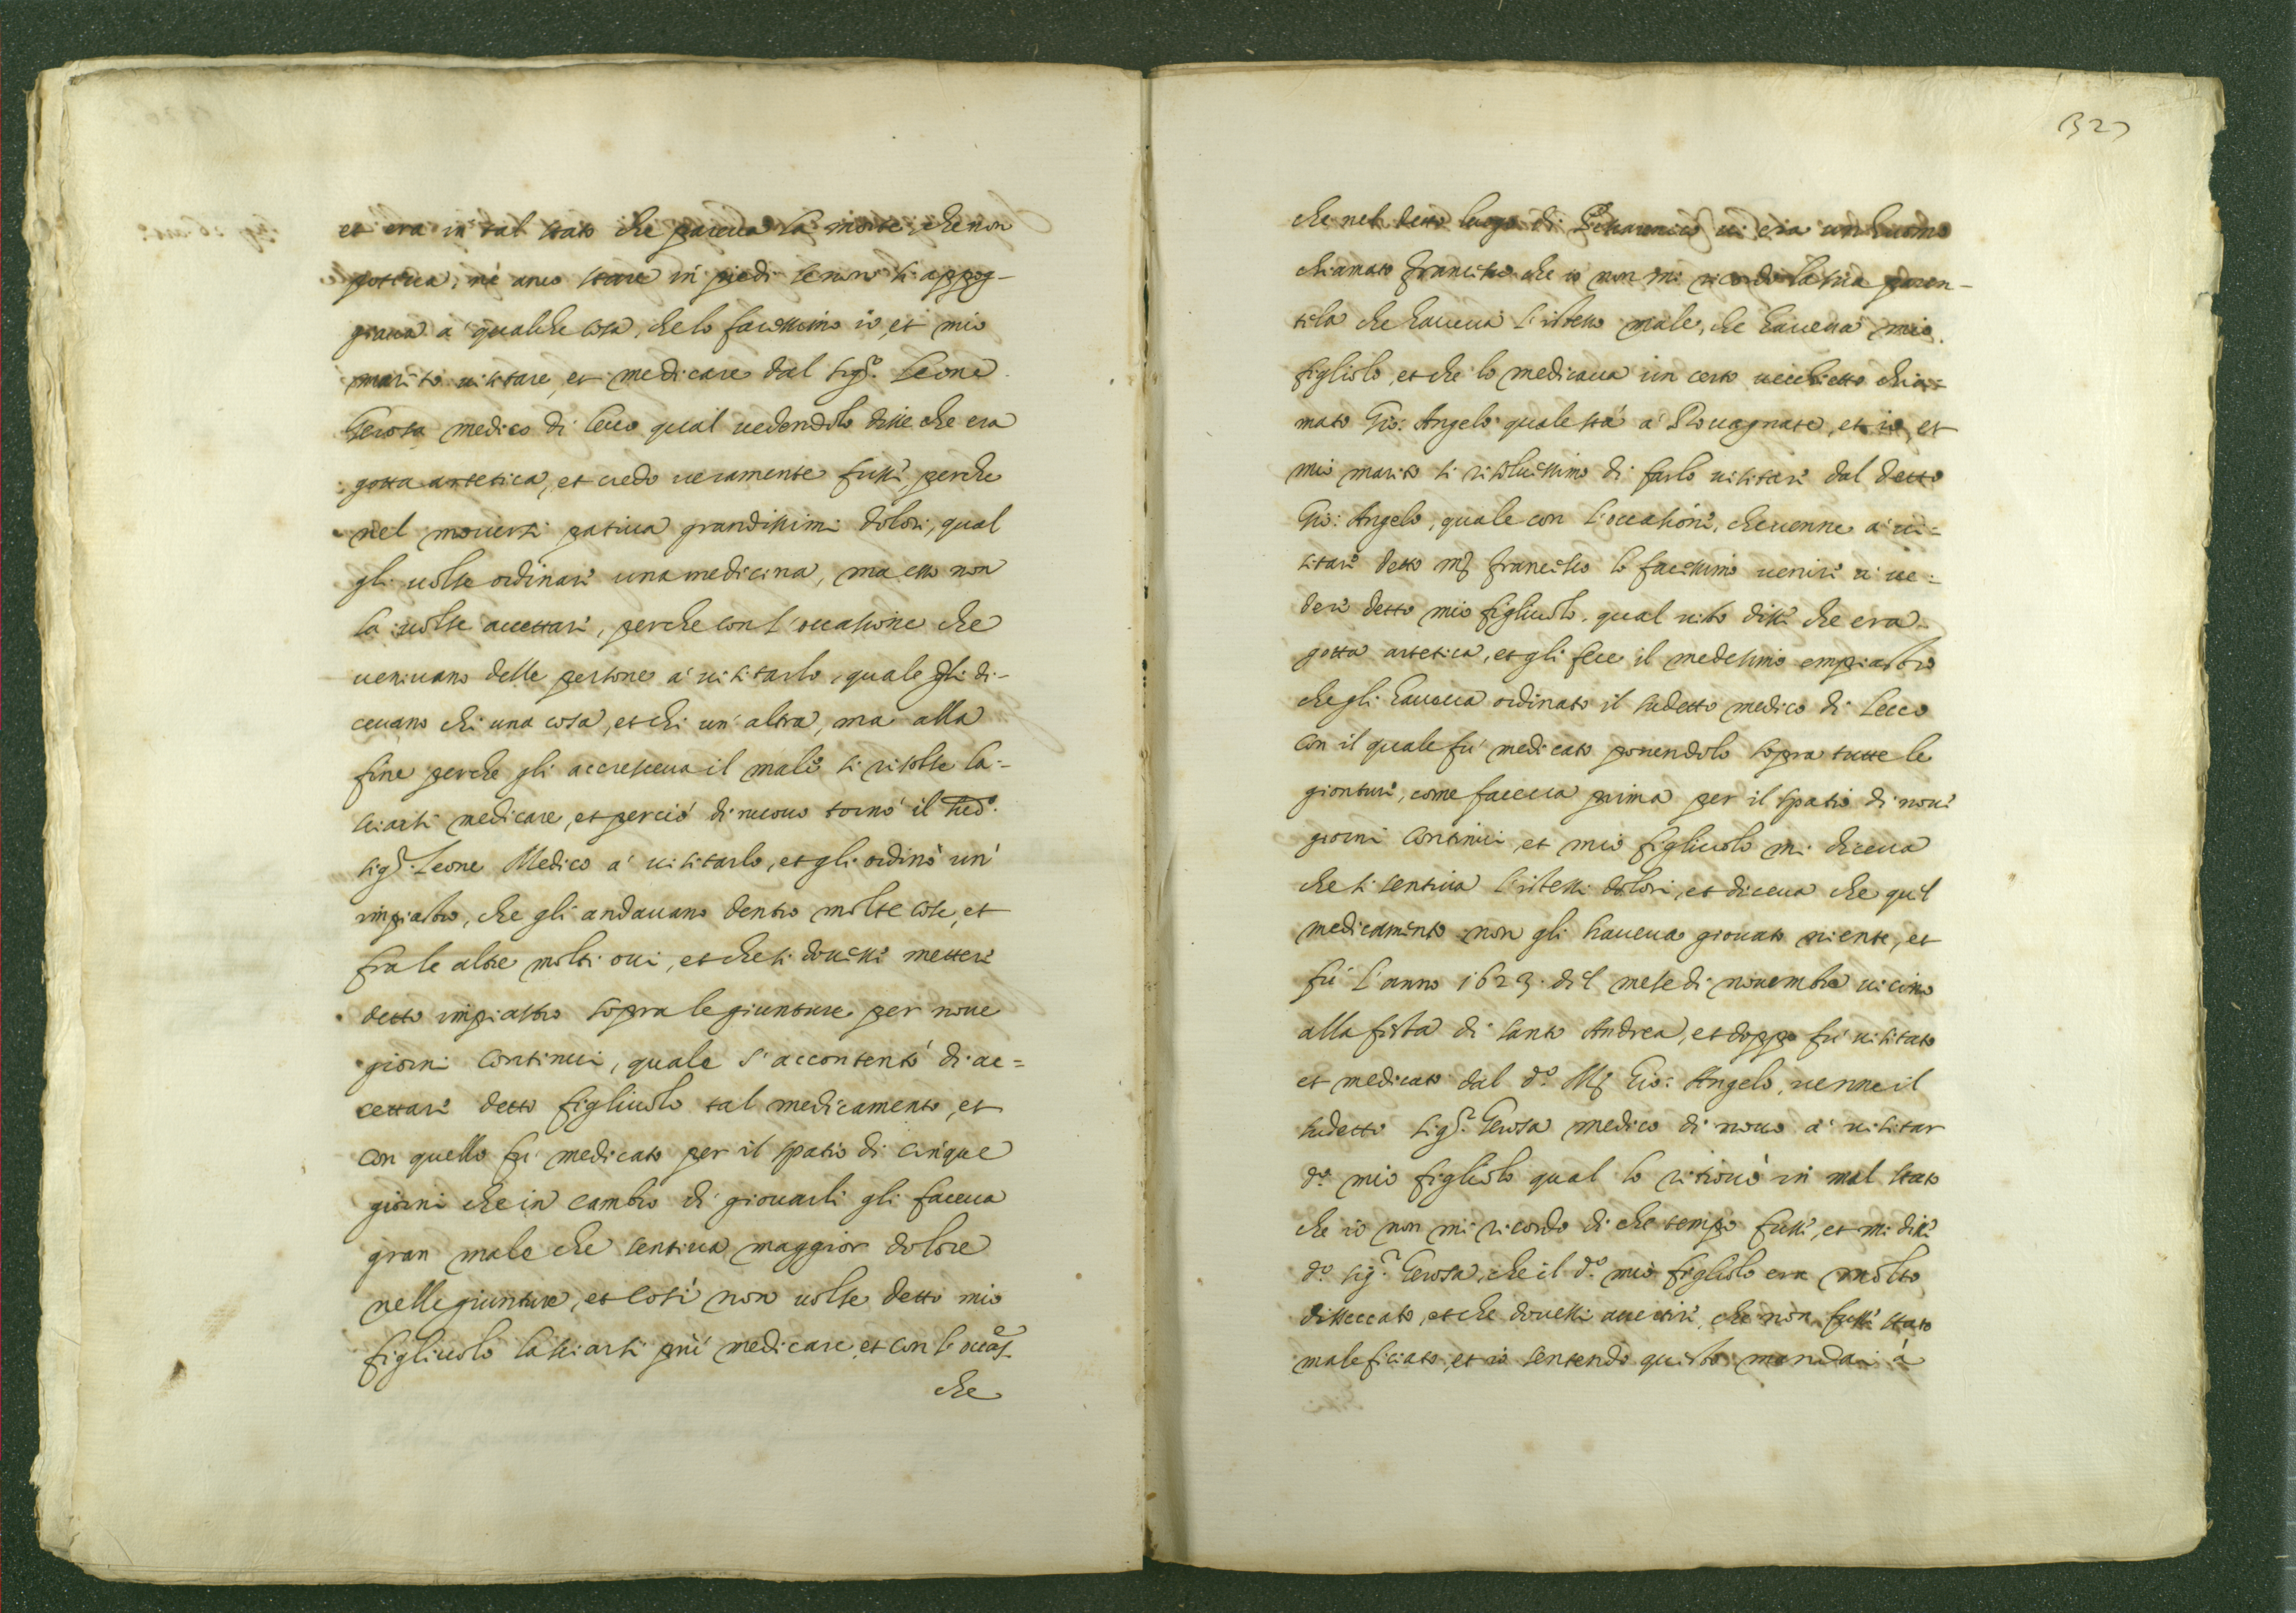 et era in tal stato che pareva la morte, che non
poteva, nè anco stare in piedi se non si appog-
giava a' qualche cosa, che lo facessimo io, et mio
marito visitare, et medicare dal Sig.r Leone
Gerosa medico di Lecco qual vedendolo disse che era
gotta artetica, et credo veramente fusse, perche
nel moversi pativa grandissimi dolori, qual
gli volse ordinare una medicina, ma esso non
la volse accettare, perche con l'occasione che
venivano delle persone a' visitarlo, quale gli di-
cevano chi una cosa, et chi un' altra, ma alla
fine perche gli accresceva il male si risolse la-
sciarsi medicare, et perciò di nuovo tornò il sud.o
Sig.r Leone Medico a' visitarlo, et gli ordinò un'
impiastro, che gli andavano dentro molte cose, et
fra le altre molti ovi, et che si dovesse mettere
detto impiastro sopra le giunture per nove
giorni continui, quale s'accontentò di ac=
cettare detto figliuolo tal medicamento, et
con quello fu medicato per il spatio di cinque
giorni che in cambio di giovarli gli faceva
gran male che sentiva maggior dolore
nelle giunture, et così non volse detto mio
figliuolo lasciarsi più medicare, et con l'occas.e
che
327
che nel detto luogo di vi era un huomo
chiamato Francesco che io non mi ricordo la sua paren-
tela che haveva l'istesso male, che haveva mio
figliolo, et che lo medicava un certo vecchietto chia=
mato Gio: Angelo quale sta a' Rovagnate, et io, et
mio marito si risolvessimo di farlo visitare dal detto
Gio: Angelo, quale con l'occasione, che venne a' vi-
sitare detto m. Francesco lo facessimo venire a' ve-
dere detto mio figliuolo, qual visto disse che era
gotta artetica, et gli fece il medesimo empiastro
che gli haveva ordinato il sudetto medico di Lecco
con il quale fu' medicato ponendolo sopra tutte le
gionture, come faceva prima per il spatio di nove
giorni continui et mio figliuolo mi diceva
che si sentiva l'istessi dolori, et diceva che quel
medicamento non gli haveva giovato niente, et
fu l'anno 1623. del mese di novembre vicino
alla festa di santo Andrea, et doppo fu' visitato
et medicato dal d.o M. Gio: Angelo, venne il
sudetto Sig.r Gerosa medico di novo a' visitar
d.o mio figliolo qual lo ritrovò in mal stato
che io non mi ricordo di che tempo fusse, et mi disse
d.o Sig.r Gerosa, che il d.o mio figliolo era molto
disseccato, et che dovessi avertire, che non fusse stato
maleficiato, et io sentendo questo mandai à